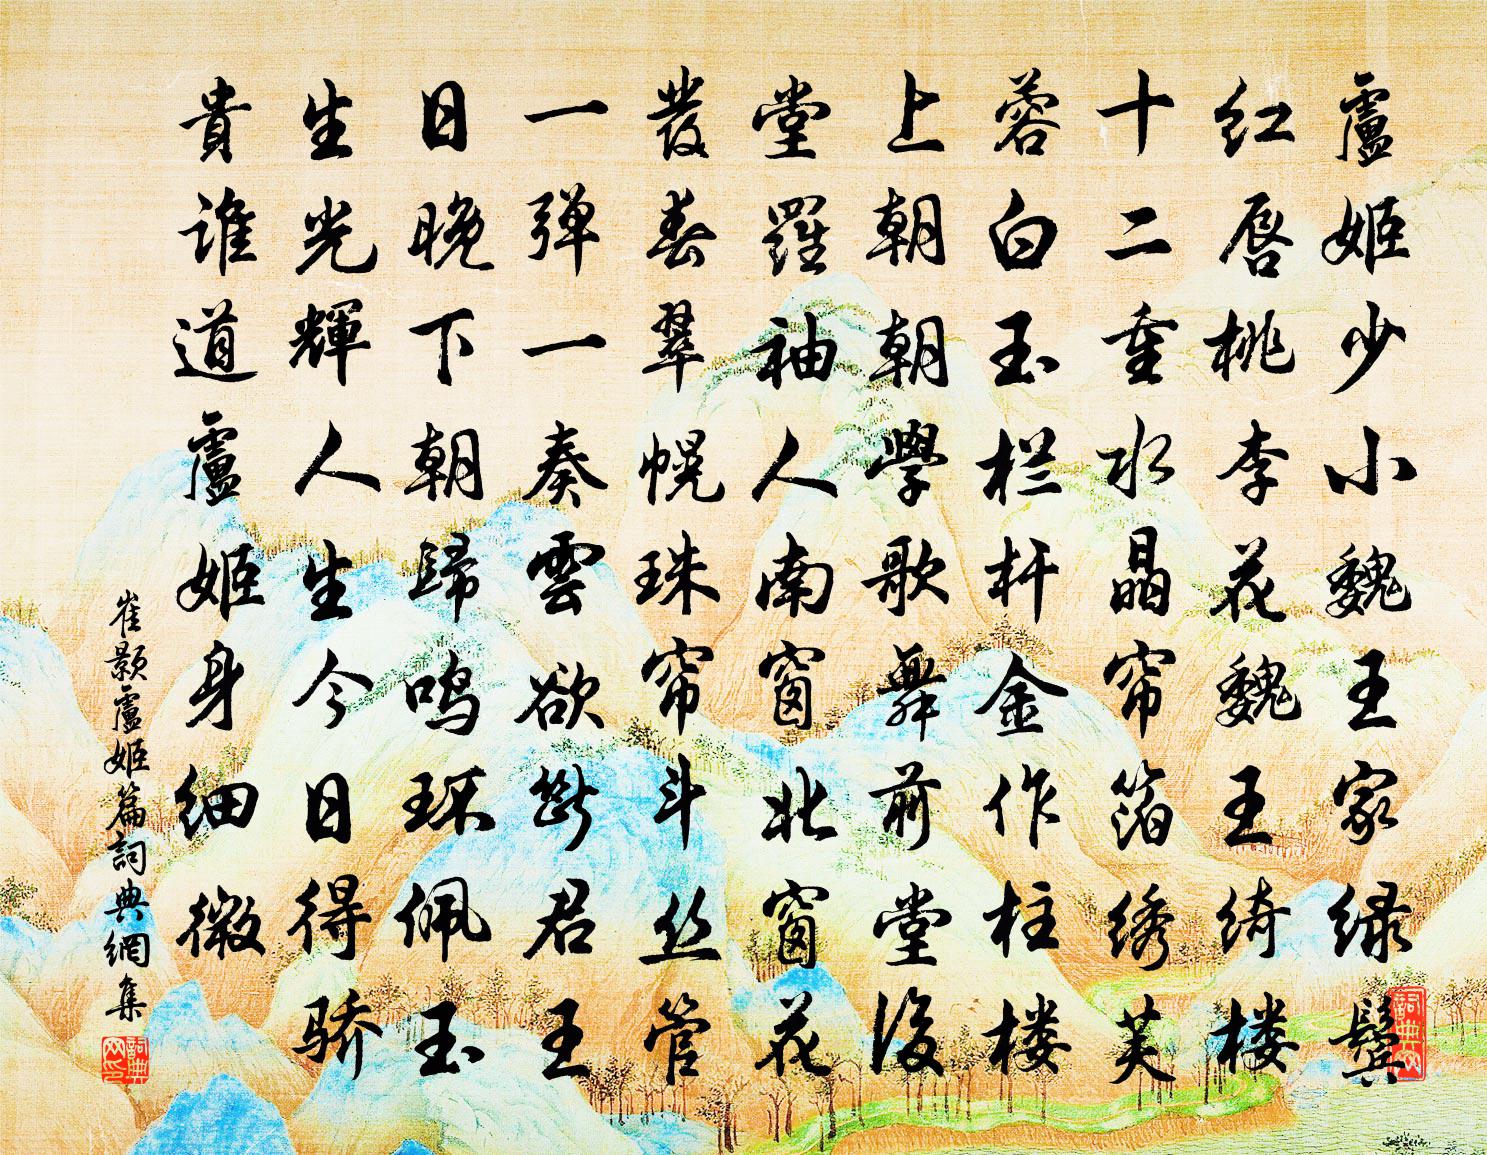 盧姬少小魏王家绿鬓
红唇桃李花魏王绮楼
十二重水晶帘箔绣芙
蓉白玉栏杆金作柱楼
上朝朝學歌舞前堂後
堂羅袖人南窗北窗花
發春翠幌珠帘斗丝管
一弹一奏雲欲斷君王
日晚下朝歸鸣环佩玉
生光輝人生今日得骄
貴谁道盧姬身细微
崔颢盧姬篇詞典網集
詞典网印